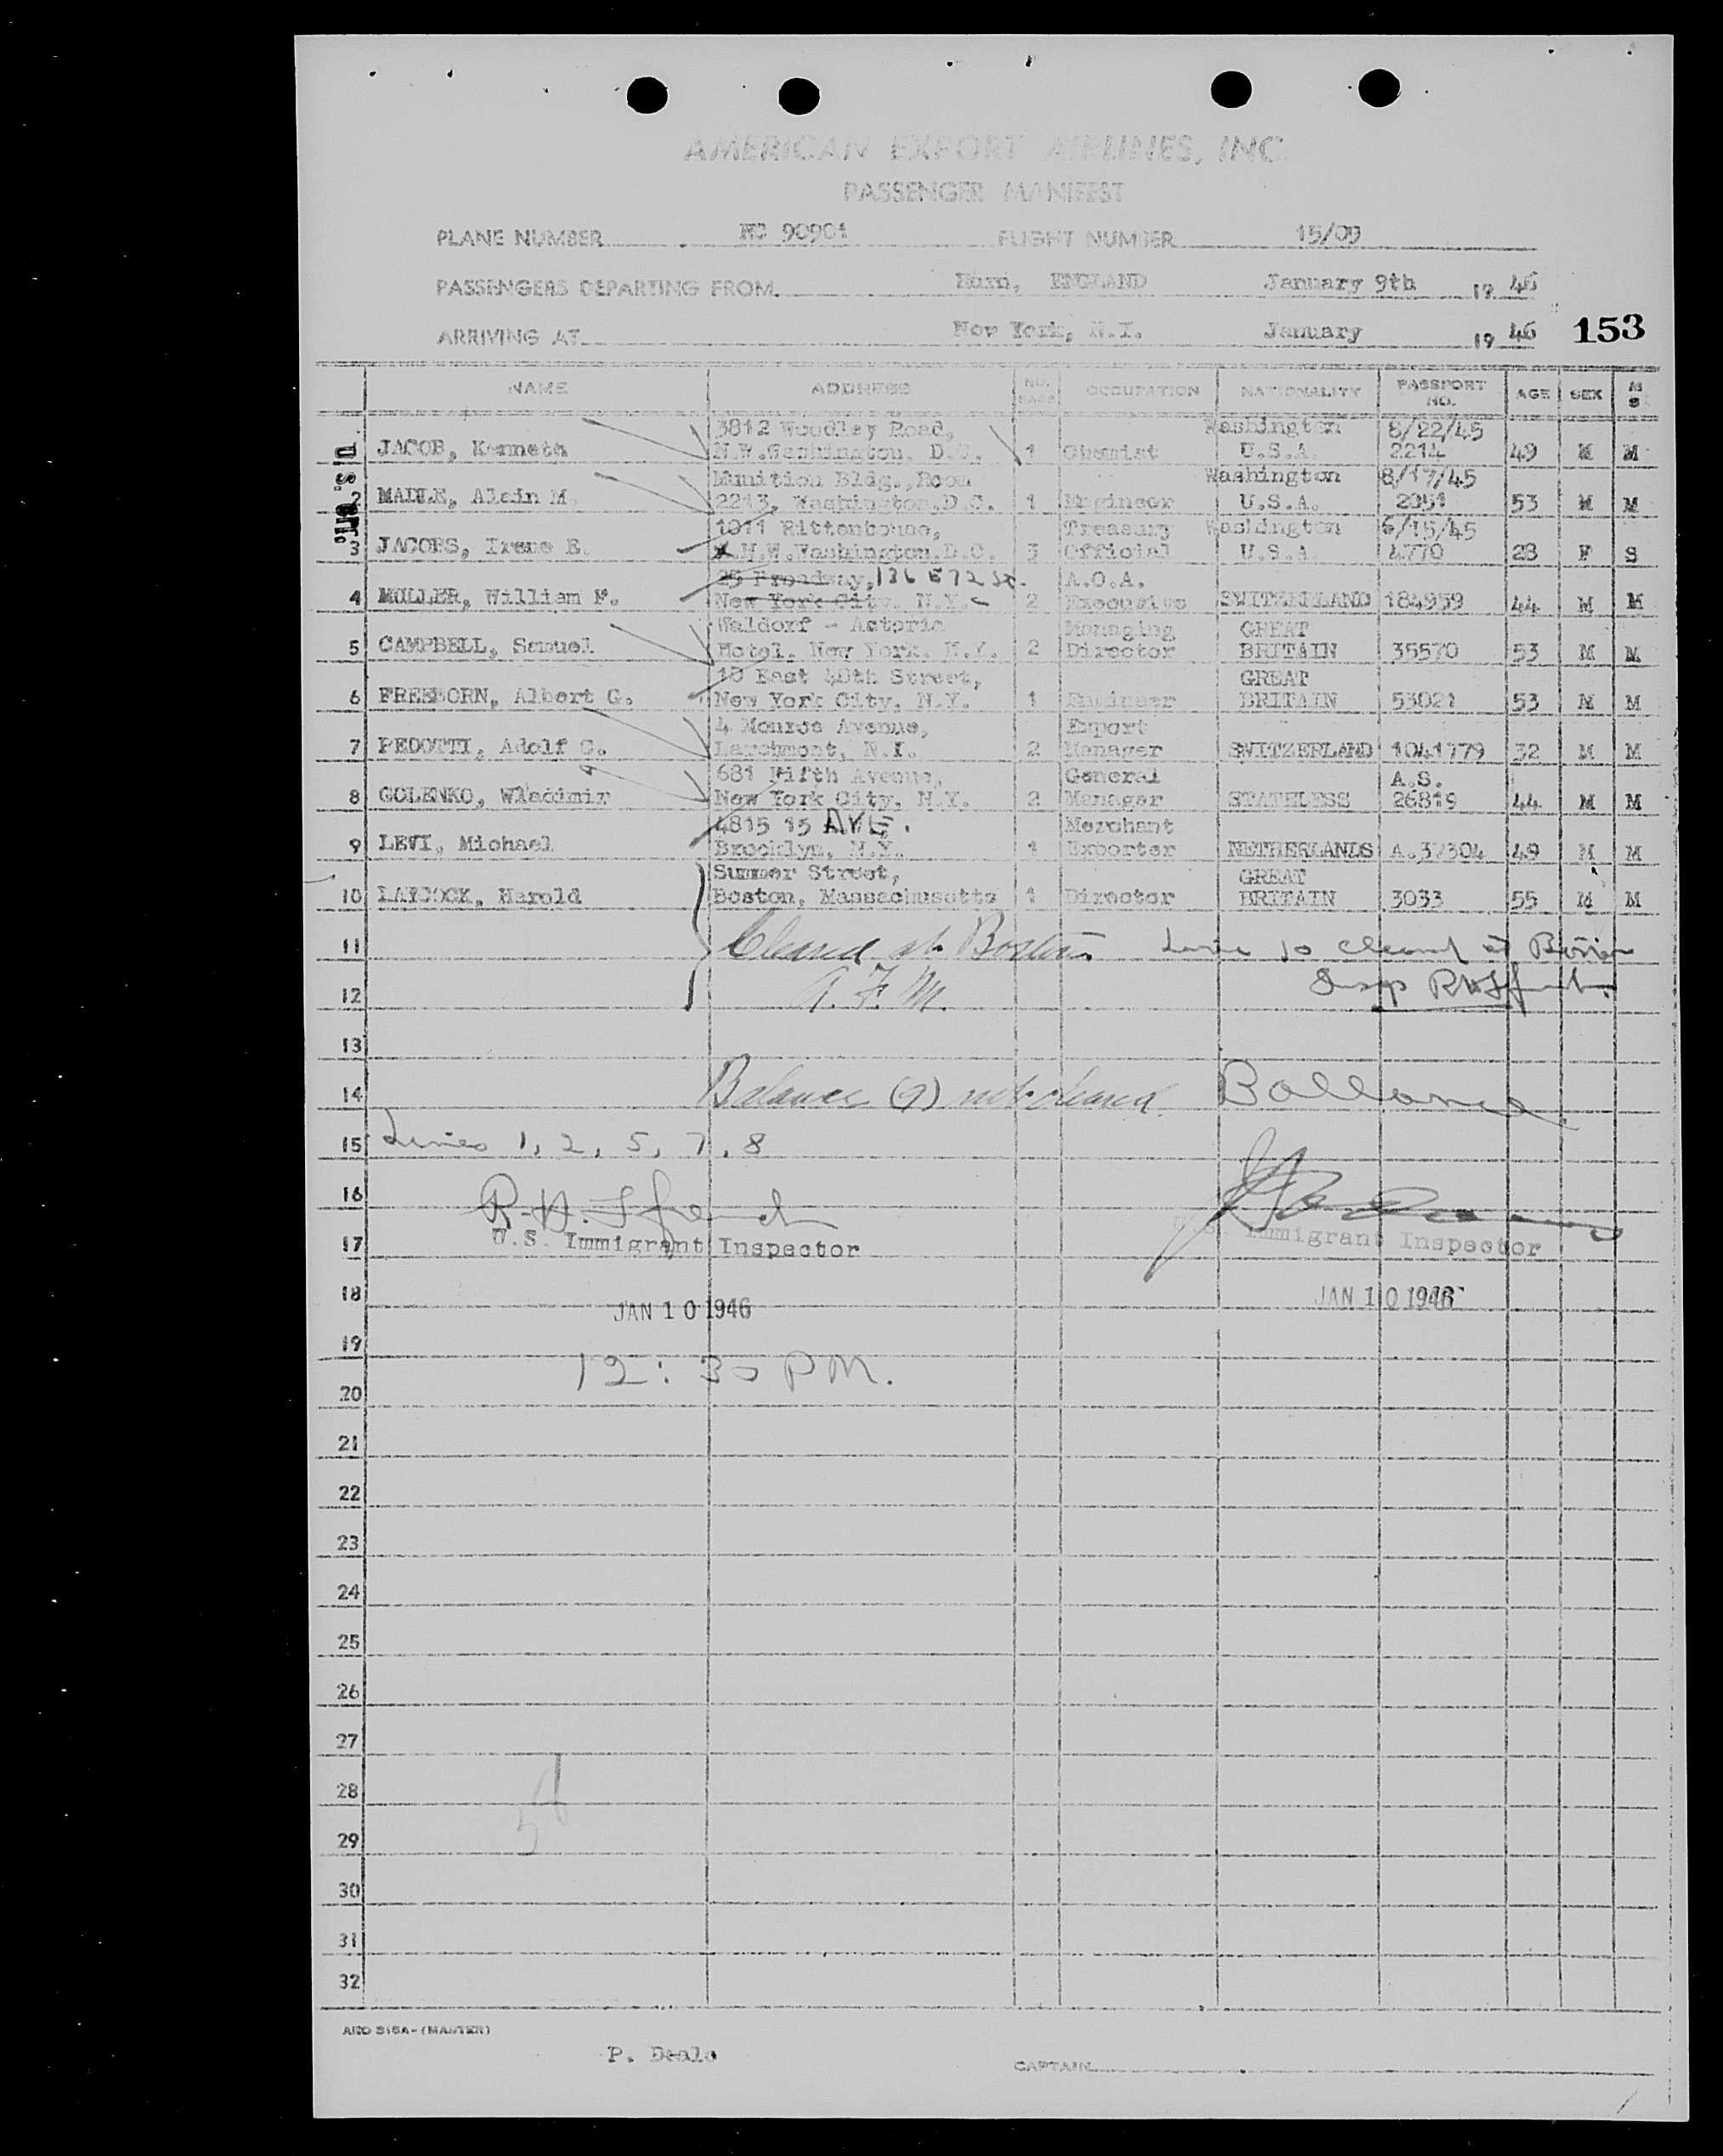 AMERICAN EXPORT AIRLINES, INC.
PASSENGER MANIFEST
PLANE NUMBER NC 90901 FLIGHT NUMBER 15/09
PASSENGERS DEPARTING FROM Hurn, ENGLAND January 9th 19 46
ARRIVING AT New York, N.Y. January 19 46 153
NAME ADDRESS NO. BAGS OCCUPATION NATIONALITY PASSPORT NO. AGE SEX M S
U.S. CIT.
3812 Woodley Road, Washington 8/22/45
JACOB, Kenneth N.W.Washington. D.C. 1 Chemist U.S.A. 2214 49 M M
Munition Bldg.,Room Washington 8/17/45
2 MADLE, Alain M. 2213, Washington.D.C. 1 Engineer U.S.A. 2051 53 M M
1011 Rittenhouse, Treasury Washington 6/15/45
3 JACOBS, Irene E. N.W.Washington.D.C. 3 Official U.S.A. 4770 28 F S
25 Broadway, 136 E 72 St. A.O.A.
4 MOLLER, William F. New York City. N.Y. 2 Executive SWITZERLAND 184959 44 M M
Waldorf - Astoria Managing GREAT
5 CAMPBELL, Samuel Hotel. New York. N.Y. 2 Director BRITAIN 35570 53 M M
10 East 40th Street, GREAT
6 FREEBORN, Albert G. New York City. N.Y. 1 Engineer BRITAIN 53021 53 M M
4 Monroe Avenue, Export
7 PEDOTTI, Adolf G. Larchmont, N.Y. 2 Manager SWITZERLAND 1041779 32 M M
681 Fifth Avenue, General A.S.
8 GOLENKO, Wladimir New York City. N.Y. 2 Manager STATELESS 26819 44 M M
4815 15 AVE. Merchant
9 LEVI, Michael Brooklyn. N.Y. 1 Exporter NETHERLANDS A.37304 49 M M
Summer Street, GREAT
10 LAYCOCK, Harold Boston, Massachusetts 1 Director BRITAIN 3033 55 M M
11 Cleared at Boston Line 10 cleared at Boston
12 A. F. M. Insp
13
14 Balance (9) not cleared
15 Lines 1, 2, 5, 7, 8
16
17 U.S. Immigrant Inspector U.S. Immigrant Inspector
18 JAN 10 1946 JAN 10 1946
19
12:30 PM.
20
21
22
23
24
25
26
27
28
29
30
31
32
AEO 315A-(MASTER)
P. Beale CAPTAIN